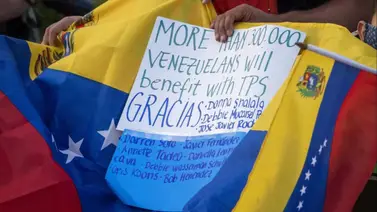 MORE than 300.000
VENEZUELANS will
benefit with TPS
GRACIAS • Donna Shalala
• Debbie Mucarsel P
• Jose Javier Rod
• Darren Soto • Javier Fernandez
• Annette Taddeo • Daniella
• Debbie Wasserman
• Bob Menendez